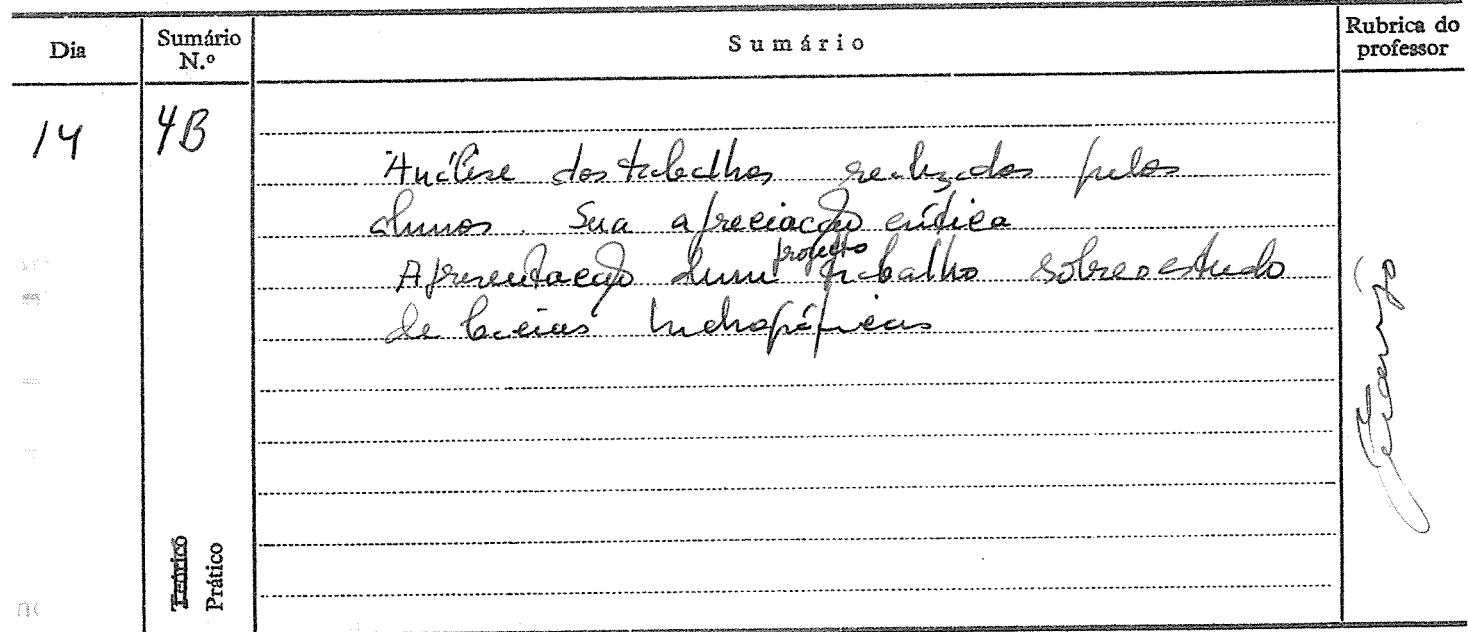 Dia
Sumário N.º
Sumário
Rubrica do professor
14
4B
Análise dos trabalhos realizados pelos
alunos. Sua apreciação crítica
Apresentação dum projecto trabalho sobre o estudo
de bacias hidrográficas
Teórico
Prático